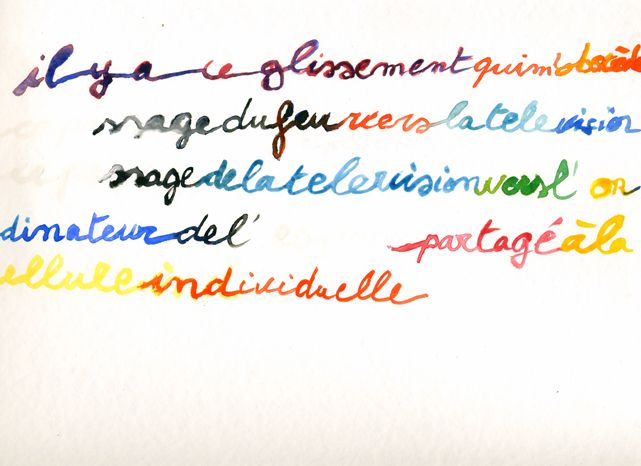 il y a ce glissement qui m'obsède
ssage du feu vers la television
ssage de la television vers l'or
dinateur de l' partagé à la
ellule individuelle